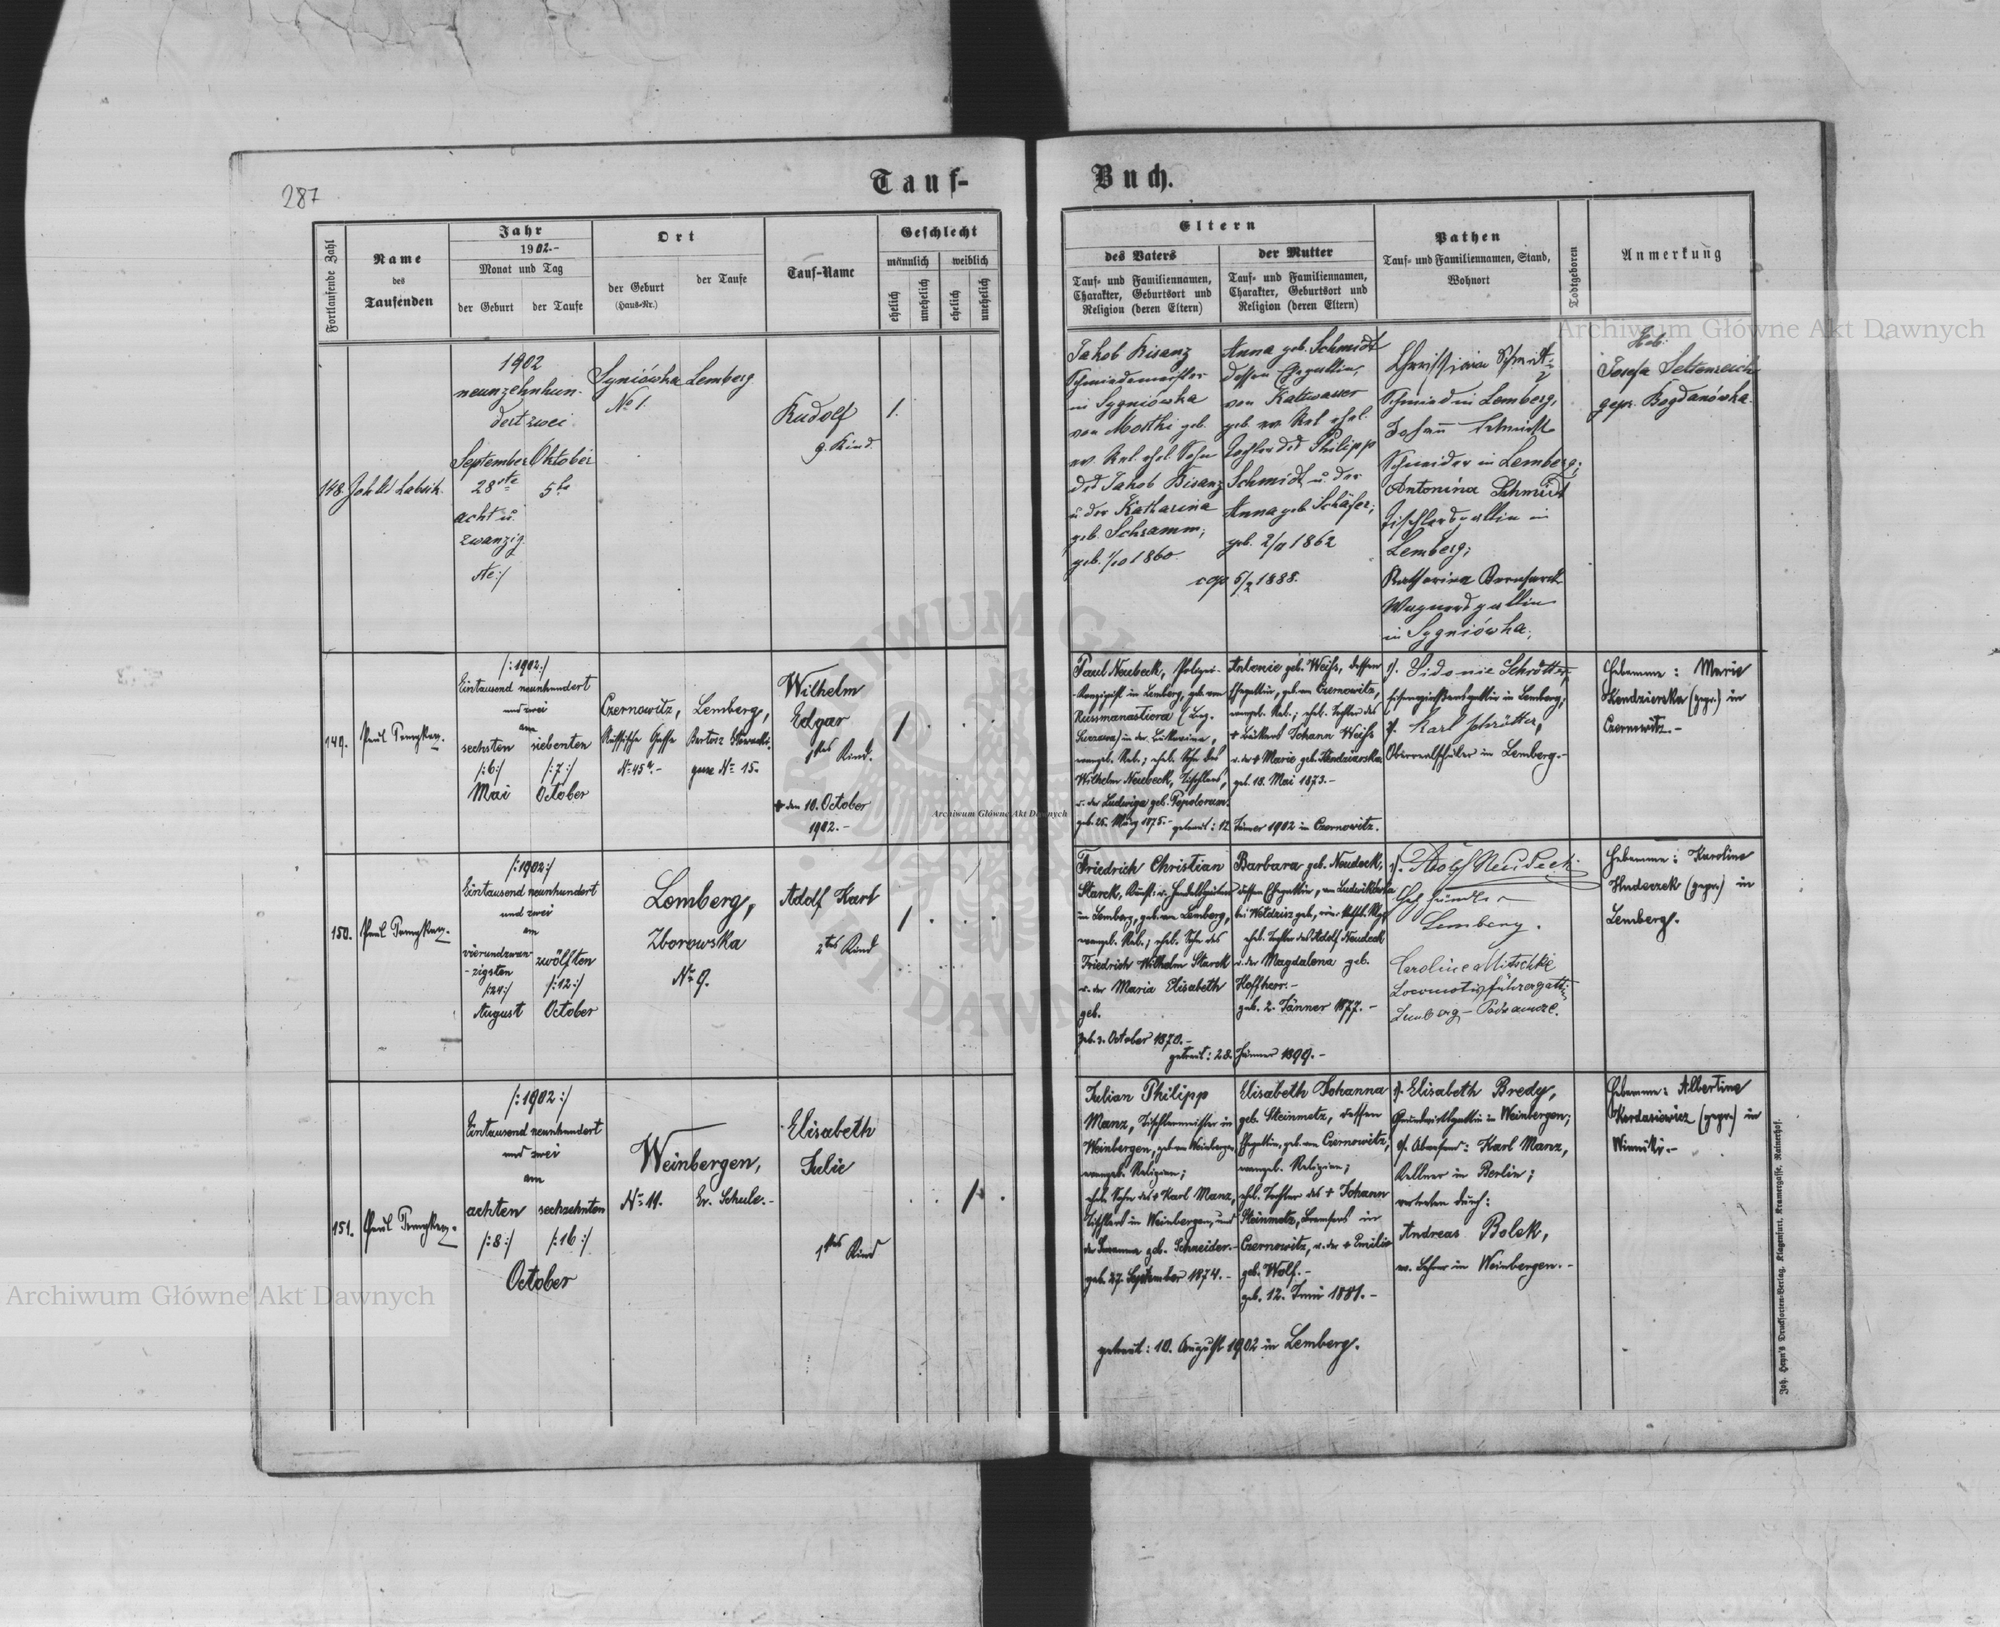 287
Tauf-
Buch.
Fortlaufende Zahl
Name
des
Taufenden
Jahr
1902.-
Monat und Tag
der Geburt
der Taufe
Ort
der Geburt
(Haus-Nr.)
der Taufe
Tauf-Name
Geschlecht
männlich
weiblich
ehelich
unehelich
ehelich
unehelich
Eltern
des Vaters
Tauf- und Familiennamen,
Charakter, Geburtsort und
Religion (deren Eltern)
der Mutter
Tauf- und Familiennamen,
Charakter, Geburtsort und
Religion (deren Eltern)
Pathen
Tauf- und Familiennamen, Stand,
Wohnort
Todtgeboren
Anmerkung
148.
1902
neunzehnhun-
dert zwei
September
28ste
acht u.
zwanzig
ste:/
Oktober
5te
Sygniówka
No 1.
Lemberg
Rudolf
9. Kind.
1.
Jakob Bisanz
Schmiedemeister
in Sygniówka
geb.
ev. Rel. ehel. Sohn
des Jakob Bisanz
u. der Katharina
geb. Schramm;
geb. 1/10 1860.
Anna geb. Schmidt
dessen Ehegattin,
von Kaltwasser
geb. ev. Rel. ehel.
Tochter des Philipp
Schmidt u. der
Anna geb. Schäfer;
geb. 2/11 1862
cop. 5/2 1888.
Schmied in Lemberg,
Johann Schmidt
Schneider in Lemberg;
Antonina Schmidt
Tischlersgattin in
Lemberg;
Katharina Bernhardt
Wagnersgattin
in Sygniówka;
Heb.
Josefa
gepr. Bogdanówka.
149.
Paul
/:1902:/
Eintausend neunhundert
und zwei
am
sechsten
/:6:/
Mai
siebenten
/:7:/
October
Czernowitz,
Russische Gasse
No 45a.-
Lemberg,
gasse No 15.
Wilhelm
Edgar
1tes Kind.
+ den 10. October
1902.-
1
Paul Neubeck, Polizei-
Konzipist in Lemberg, geb. von
Russmanastiora (Bez.
) in der Bukowina,
evangel. Rel.; ehel. Sohn des
Wilhelm Neubeck, Tischlers,
u. der Ludwiga geb. Popolorum.
geb. 25. März 1875.-
Antonie geb. Weiss, dessen
Ehegattin, geb. von Czernowitz,
evangel. Rel.; ehel. Tochter des
+ Bäckers Johann Weiss
u. der + Marie geb.
geb. 18. Mai 1873.-
getraut: 12. Jänner 1902 in Czernowitz.
1). Sidonie Schrötter,
in Lemberg;
2). Karl Schrötter,
Oberrealschüler in Lemberg.-
Hebamme: Marie
(gepr.) in
Czernowitz.-
150.
Paul
/:1902:/
Eintausend neunhundert
und zwei
am
vierundzwan-
zigsten
/:24:/
August
zwölften
/:12:/
October
Lemberg,
Zborowska
No 9.
Adolf Karl
2tes Kind
1
Friedrich Christian
Starck, Kunst- u. Handelsgärtner
in Lemberg, geb. von Lemberg,
evangel. Rel.; ehel. Sohn des
Friedrich Wilhelm Starck
u. der Maria Elisabeth
geb.
geb. 3. October 1870.-
Barbara geb. Neudeck,
dessen Ehegattin, von Ludwikówka
bei
ehel. Tochter des Adolf Neudeck
u. der Magdalena geb.
Hoffherr.-
geb. 2. Jänner 1877.-
getraut: 28. Jänner 1899.-
1). Adolf Neudeck
Lemberg.
Caroline Mitschke
Locomotivführersgattin
Lemberg - Podzamcze.
Hebamme: Karoline
(gepr.) in
Lemberg.
151.
Paul
/:1902:/
Eintausend neunhundert
und zwei
am
achten
/:8:/
sechzehnten
/:16:/
October
Weinbergen,
No 11.
Ev. Schule.-
Elisabeth
Julie
1tes Kind
1
Julian Philipp
Manz, Tischlermeister in
Weinbergen, geb. von Weinbergen
evangel. Religion;
ehel. Sohn des + Karl Manz,
Tischlers in Weinbergen, und
der Susanna geb. Schneider.-
geb. 27. September 1874.-
Elisabeth Johanna
geb. Steinmetz, dessen
Ehegattin, geb. von Czernowitz,
evangel. Religion;
ehel. Tochter des + Johann
Steinmetz, Bremsers in
Czernowitz, u. der + Emilie
geb. Wolf.-
geb. 12. Juni 1881.-
getraut: 10. August 1902 in Lemberg.
1). Elisabeth Bredy,
Grundwirthsgattin in Weinbergen;
2). Abwesend: Karl Manz,
Kellner in Berlin;
vertreten durch:
Andreas Bolek,
ev. Lehrer in Weinbergen.-
Hebamme: Albertine
Kordasiewicz (gepr.) in
Winniki.-
Joh. Heyn's Drucksorten-Verlag, Klagenfurt, Kramergasse, Rainerhof.
Archiwum Główne Akt Dawnych
Archiwum Główne Akt Dawnych
Archiwum Główne Akt Dawnych